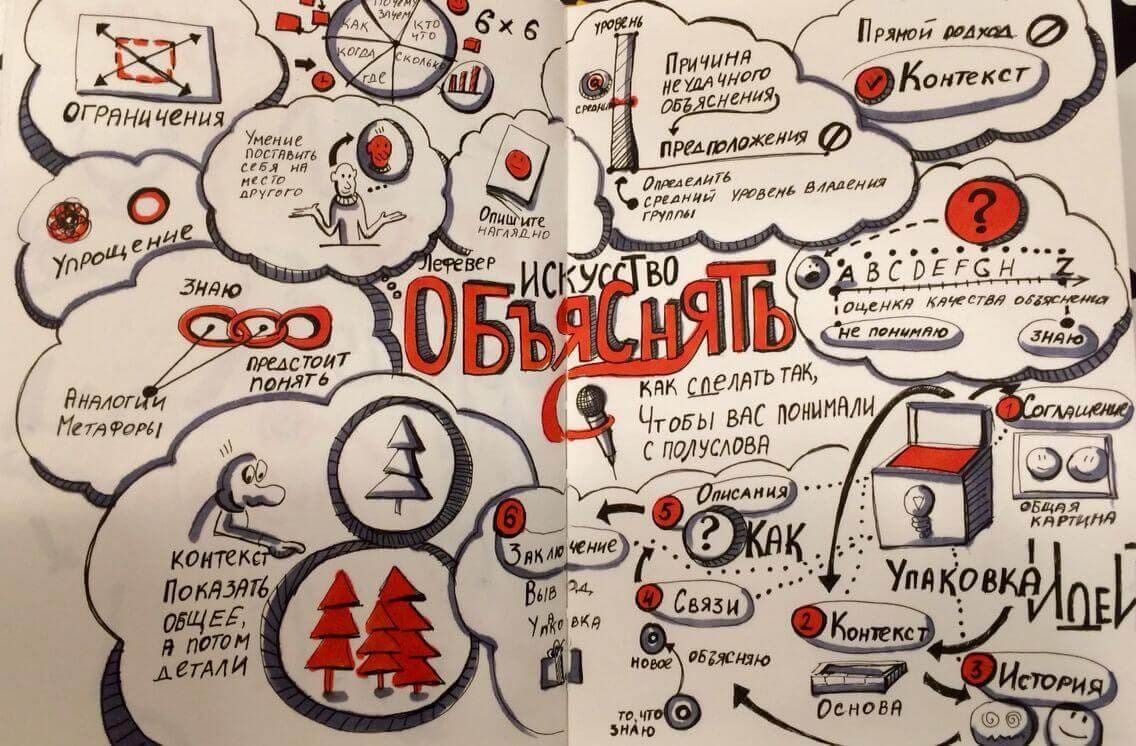 ОГРАНИЧЕНИЯ
ПОЧЕМУ
ЗАЧЕМ
КАК
КТО
ЧТО
КОГДА
СКОЛЬКО
ГДЕ
6 × 6
УМЕНИЕ
ПОСТАВИТЬ
СЕБЯ НА
МЕСТО
ДРУГОГО
ОПИШИТЕ
НАГЛЯДНО
УПРОЩЕНИЕ
ЗНАЮ
ПРЕДСТОИТ
ПОНЯТЬ
АНАЛОГИИ
МЕТАФОРЫ
КОНТЕКСТ
ПОКАЗАТЬ
ОБЩЕЕ,
А ПОТОМ
ДЕТАЛИ
ЛЕФЕВЕР
ИСКУССТВО
ОБЪЯСНЯТЬ
КАК СДЕЛАТЬ ТАК,
ЧТОБЫ ВАС ПОНИМАЛИ
С ПОЛУСЛОВА
УРОВЕНЬ
СРЕДНИЙ
ПРИЧИНА
НЕУДАЧНОГО
ОБЪЯСНЕНИЯ
ПРЕДПОЛОЖЕНИЯ
ОПРЕДЕЛИТЬ
СРЕДНИЙ УРОВЕНЬ ВЛАДЕНИЯ
ГРУППЫ
ПРЯМОЙ ПОДХОД
КОНТЕКСТ
?
A B C D E F G H Z
ОЦЕНКА КАЧЕСТВА ОБЪЯСНЕНИЯ
НЕ ПОНИМАЮ
ЗНАЮ
1 СОГЛАШЕНИЕ
ОБЩАЯ
КАРТИНА
УПАКОВКА ИДЕЙ
2 КОНТЕКСТ
ОСНОВА
3 ИСТОРИЯ
4 СВЯЗИ
НОВОЕ
ОБЪЯСНЯЮ
ТО, ЧТО
ЗНАЮ
5 ОПИСАНИЯ
? КАК
6
ЗАКЛЮЧЕНИЕ
ВЫВОД,
УПАКОВКА